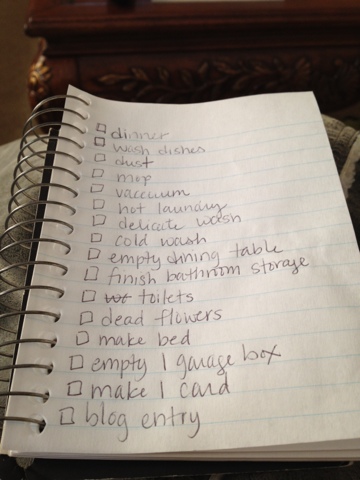 dinner
wash dishes
dust
mop
vaccuum
hot laundry
delicate wash
cold wash
empty dining table
finish bathroom storage
wo toilets
dead flowers
make bed
empty 1 garage box
make 1 card
blog entry